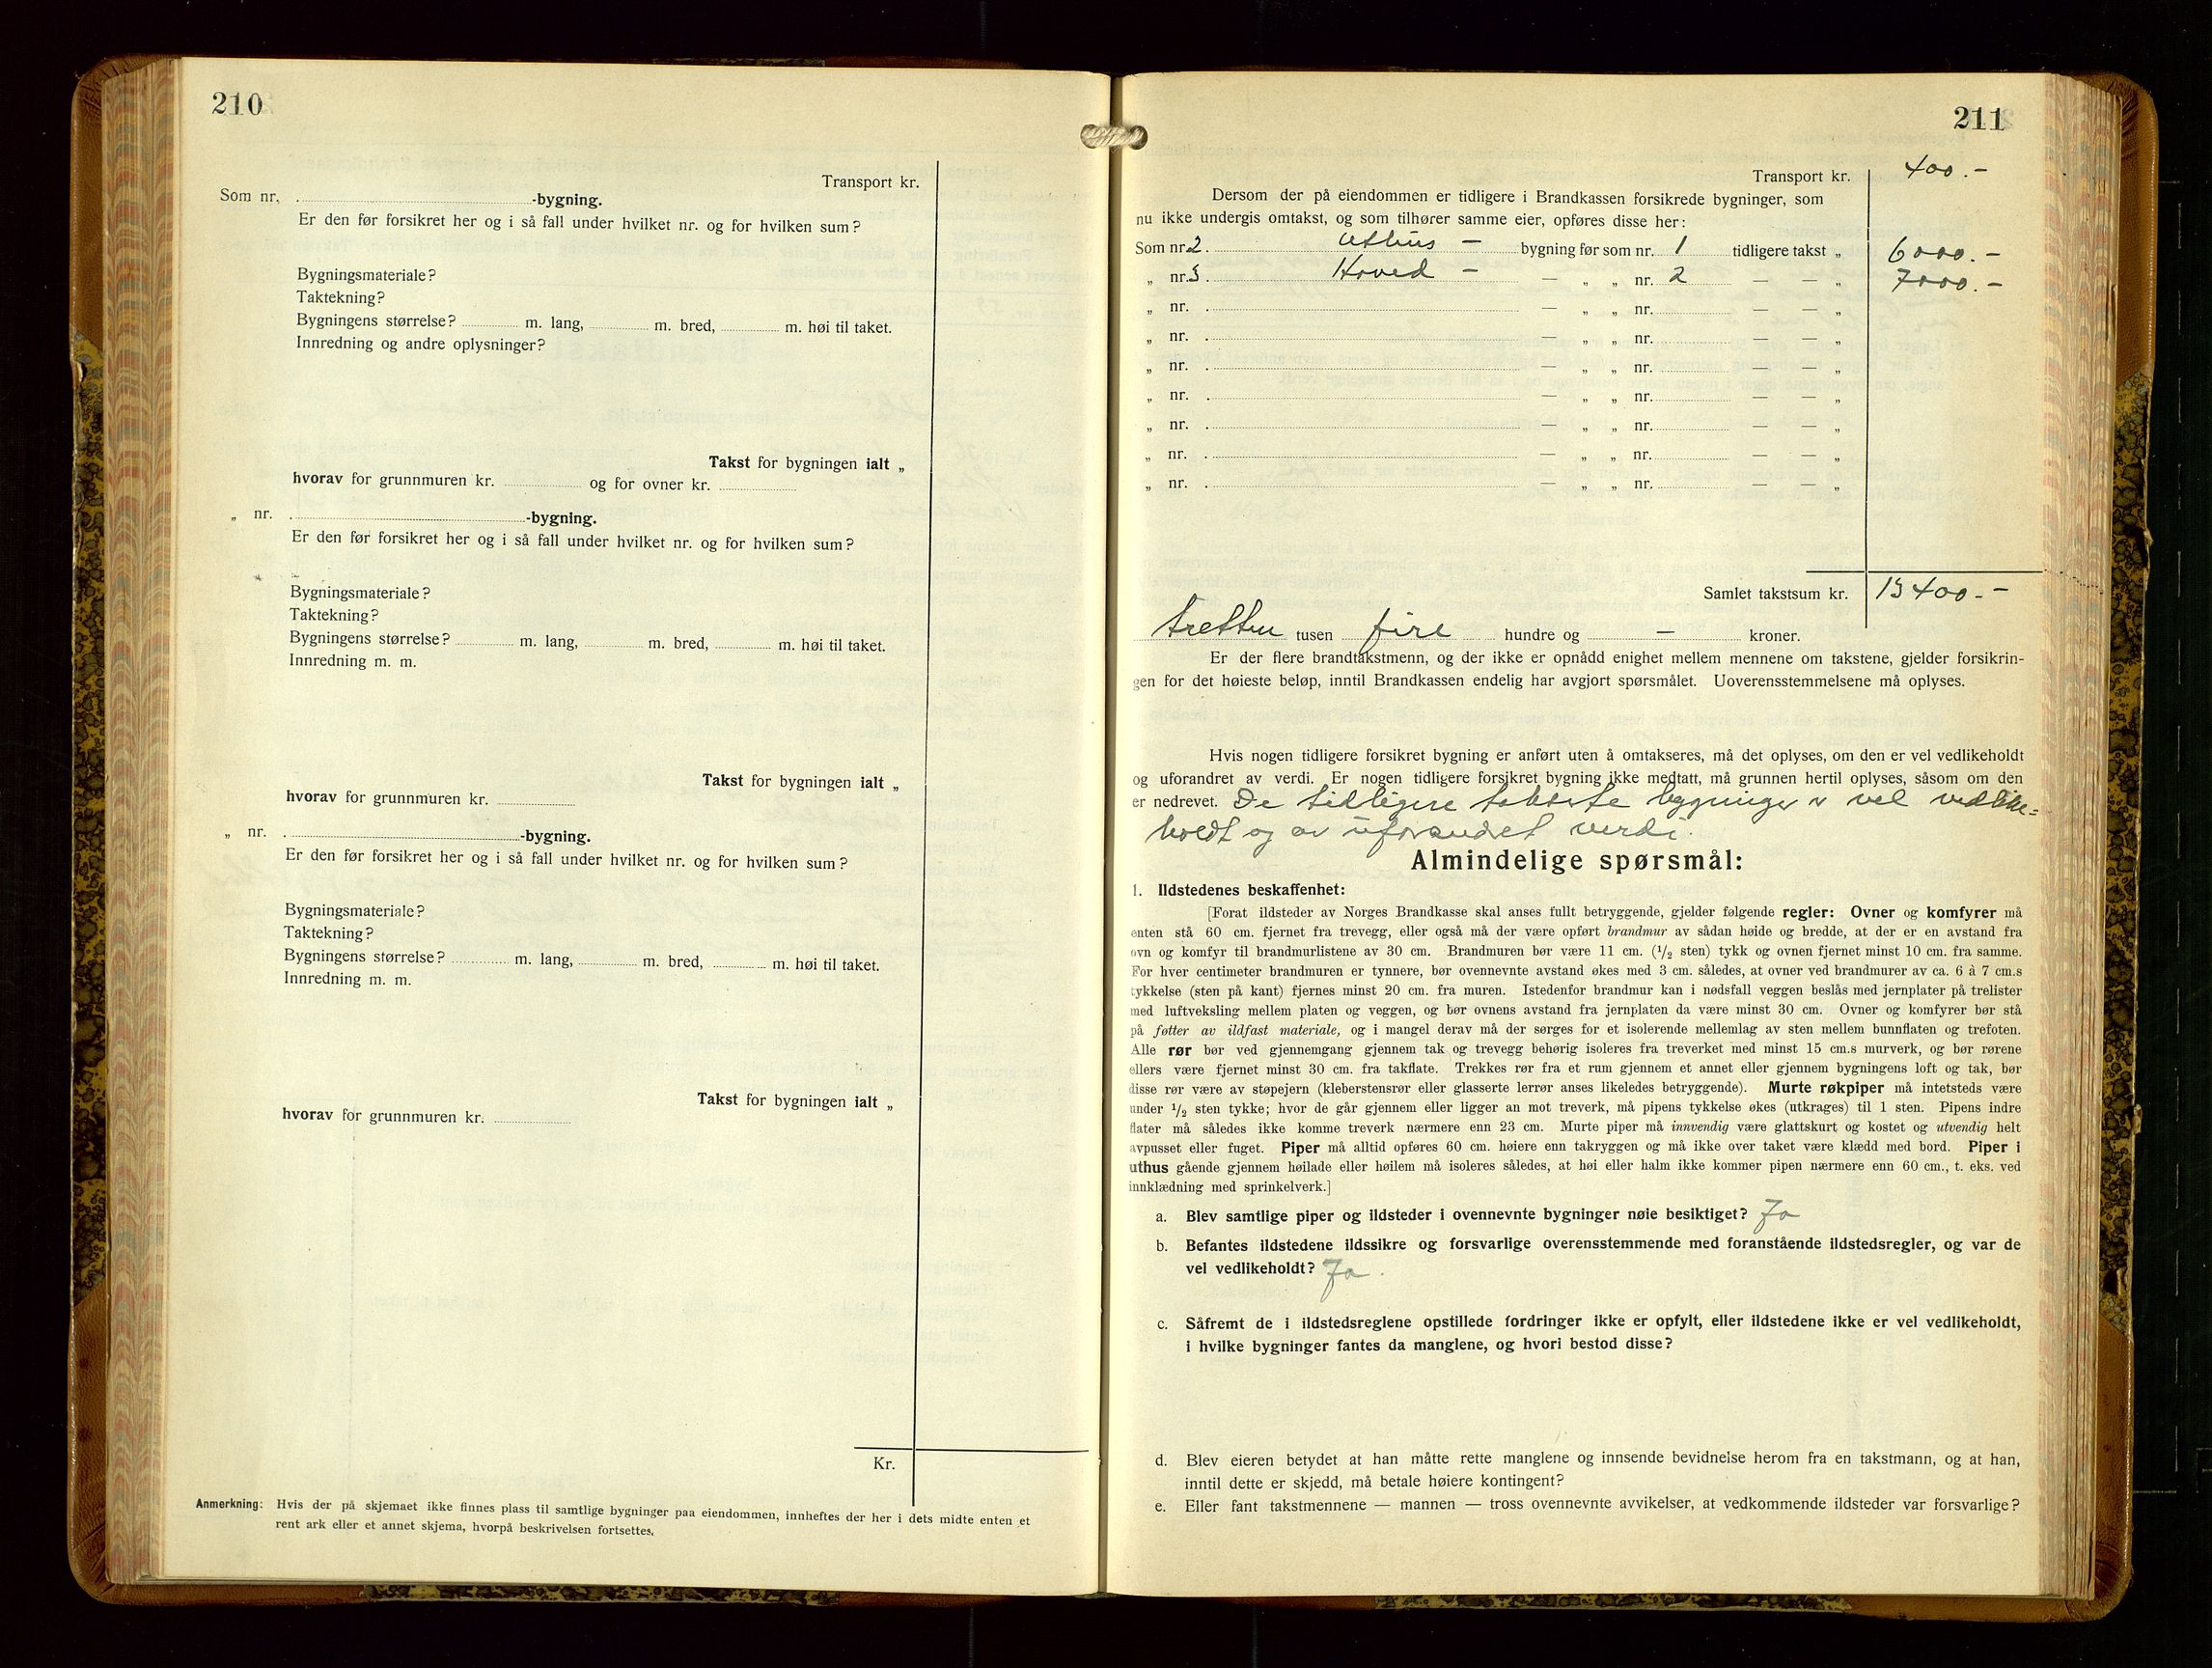 210
Transport kr.
Som nr. -bygning.
Er den før forsikret her og i så fall under hvilket nr. og for hvilken sum?
Bygningsmateriale?
Taktekning?
Bygningens størrelse? m. lang, m. bred, m. høi til taket.
Innredning og andre oplysninger?
Takst for bygningen ialt „
hvorav for grunnmuren kr. og for ovner kr.
„ nr. -bygning.
Er den før forsikret her og i så fall under hvilket nr. og for hvilken sum?
Bygningsmateriale?
Taktekning?
Bygningens størrelse? m. lang, m. bred, m. høi til taket.
Innredning m. m.
Takst for bygningen ialt „
hvorav for grunnmuren kr.
„ nr. -bygning.
Er den før forsikret her og i så fall under hvilket nr. og for hvilken sum?
Bygningsmateriale?
Taktekning?
Bygningens størrelse? m. lang, m. bred, m. høi til taket.
Innredning m. m.
Takst for bygningen ialt „
hvorav for grunnmuren kr.
Kr.
Anmerkning: Hvis der på skjemaet ikke finnes plass til samtlige bygninger paa eiendommen, innheftes der her i dets midte enten et
rent ark eller et annet skjema, hvorpå beskrivelsen fortsettes.
211
Transport kr. 400.-
Dersom der på eiendommen er tidligere i Brandkassen forsikrede bygninger, som
nu ikke undergis omtakst, og som tilhører samme eier, opføres disse her:
Som nr. 2. Uthus - bygning før som nr. 1 tidligere takst „ 6000.-
„ nr. 3. Hoved - — „ „ nr. 2 — — „ 7000.-
„ nr. . — „ „ nr. — — „
„ nr. . — „ „ nr. — — „
„ nr. . — „ „ nr. — — „
„ nr. . — „ „ nr. — — „
„ nr. . — „ „ nr. — — „
„ nr. . — „ „ nr. — — „
„ nr. . — „ „ nr. — — „
Samlet takstsum kr. 13400.-
tretten tusen fire hundre og — kroner.
Er der flere brandtakstmenn, og der ikke er opnådd enighet mellem mennene om takstene, gjelder forsikrin-
gen for det høieste beløp, inntil Brandkassen endelig har avgjort spørsmålet. Uoverensstemmelsene må oplyses.
Hvis nogen tidligere forsikret bygning er anført uten å omtakseres, må det oplyses, om den er vel vedlikeholdt
og uforandret av verdi. Er nogen tidligere forsikret bygning ikke medtatt, må grunnen hertil oplyses, såsom om den
er nedrevet. De tidligere takserte bygninger er vel vedlike=
holdt og av uforandret verdi.
Almindelige spørsmål:
1. Ildstedenes beskaffenhet:
[Forat ildsteder av Norges Brandkasse skal anses fullt betryggende, gjelder følgende regler: Ovner og komfyrer må
enten stå 60 cm. fjernet fra trevegg, eller også må der være opført brandmur av sådan høide og bredde, at der er en avstand fra
ovn og komfyr til brandmurlistene av 30 cm. Brandmuren bør være 11 cm. (1/2 sten) tykk og ovnen fjernet minst 10 cm. fra samme.
For hver centimeter brandmuren er tynnere, bør ovennevnte avstand økes med 3 cm. således, at ovner ved brandmurer av ca. 6 à 7 cm.s
tykkelse (sten på kant) fjernes minst 20 cm. fra muren. Istedenfor brandmur kan i nødsfall veggen beslås med jernplater på trelister
med luftveksling mellem platen og veggen, og bør ovnens avstand fra jernplaten da være minst 30 cm. Ovner og komfyrer bør stå
på føtter av ildfast materiale, og i mangel derav må der sørges for et isolerende mellemlag av sten mellem bunnflaten og trefoten.
Alle rør bør ved gjennemgang gjennem tak og trevegg behørig isoleres fra treverket med minst 15 cm.s murverk, og bør rørene
ellers være fjernet minst 30 cm. fra takflate. Trekkes rør fra et rum gjennem et annet eller gjennem bygningens loft og tak, bør
disse rør være av støpejern (kleberstensrør eller glasserte lerrør anses likeledes betryggende). Murte røkpiper må intetsteds være
under 1/2 sten tykke; hvor de går gjennem eller ligger an mot treverk, må pipens tykkelse økes (utkrages) til 1 sten. Pipens indre
flater må således ikke komme treverk nærmere enn 23 cm. Murte piper må innvendig være glattskurt og kostet og utvendig helt
avpusset eller fuget. Piper må alltid opføres 60 cm. høiere enn takryggen og må ikke over taket være klædd med bord. Piper i
uthus gående gjennem høilade eller høilem må isoleres således, at høi eller halm ikke kommer pipen nærmere enn 60 cm., t. eks. ved
innklædning med sprinkelverk.]
a. Blev samtlige piper og ildsteder i ovennevnte bygninger nøie besiktiget? Ja
b. Befantes ildstedene ildssikre og forsvarlige overensstemmende med foranstående ildstedsregler, og var de
vel vedlikeholdt? Ja.
c. Såfremt de i ildstedsreglene opstillede fordringer ikke er opfylt, eller ildstedene ikke er vel vedlikeholdt,
i hvilke bygninger fantes da manglene, og hvori bestod disse?
d. Blev eieren betydet at han måtte rette manglene og innsende bevidnelse herom fra en takstmann, og at han,
inntil dette er skjedd, må betale høiere kontingent?
e. Eller fant takstmennene — mannen — tross ovennevnte avvikelser, at vedkommende ildsteder var forsvarlige?